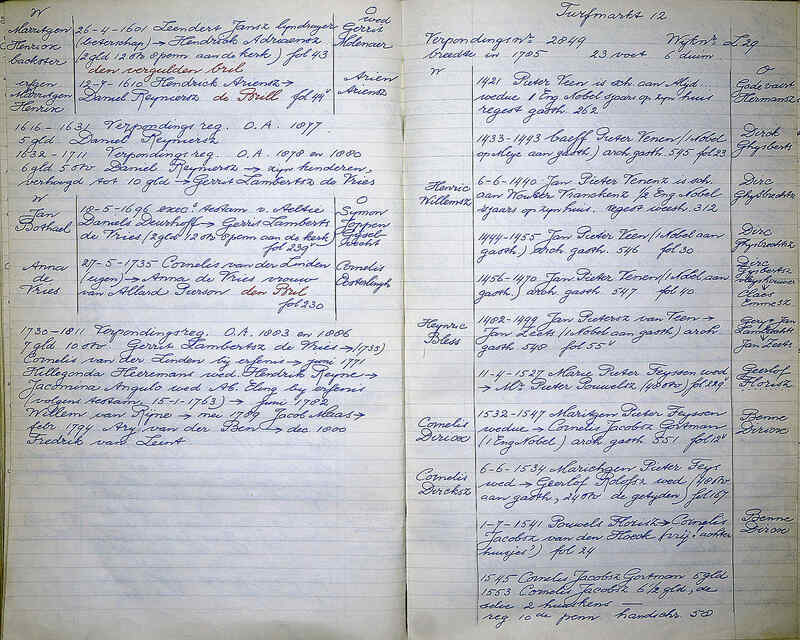 W
Marritgen
Henricx
backster
26-4-1601 Leendert Jansz lyndrayer
(beterschap) → Hendrick Adriaensz
(2 gld 12 stv 8 penn. aan de kerk) fol 43
den vergulden bril
O
wed
Gerrit
Molenaer
erfgen
Marritgen
Henrix
12-7-1610 Hendrick Ariensz →
Daniel Reyniersz de Brill fol 44v
Arien
Ariensz
1616-1631 Verpondings reg. O.A. 1877.
5 gld Daniel Reyniersz
1632-1711 Verpondings reg. O.A. 1878 en 1880
6 gld 5 stv Daniel Reyniersz → zyn kinderen,
verhuurd tot 10 gld → Gerrit Lambertsz de Vries
W
Jan
Bothsel
18-5-1696 exec. testam v. Aeltie
Daniels Deurhoff → Gerrit Lamberts
de Vries (2 gld 12 stv 8 penn aan de kerk)
fol 239v
O
Symon
Joppen
Gysel
Anna
de
Vries
27-5-1735 Cornelis van der Linden
(eigen) → Anna de Vries vrouw
van Allard Pierson den Bril
fol 230
Cornelis
Oosterlingh
1730-1811 Verpondingsreg. O.A. 1883 en 1886
7 gld 10 stv Gerrit Lambertsz de Vries → (1735)
Cornelis van der Linden by erfenis → juni 1771
Hillegonda Heeremans wed Hendrik Reyne →
Jacomina Angulo wed Ab. Eling by erfenis
(volgens testam. 15-1-1763) → juni 1782
Willem van Ryne → mei 1789 Jacob Maas →
febr 1794 Ary van der Ben → dec 1800
Fredrik van Leent
Turfmarkt 12
Verpondingsnr 2849 Wyknr L 29
breedte in 1785 23 voet 6 duim.
W
1421 Pieter Veen is sch. aan Alyd...
wedue 1 Eng Nobel sjaers op zyn huis
regest gasth. 262
O
Godevaert
Hermansz
1433-1443 Caeff Pieter Venen (1 Nobel
op Meye aan gasth) arch. gasth. 545 fol 23
Dirck
Ghysberts
Henric
Willemsz
6-6-1440 Jan Pieter Venenz is sch.
aan Wouter Franckenz 1/2 Eng Nobel
tsjaers op zyn huis. regest weesh. 312
Dirc
Ghysbrechtsz
1444-1455 Jan Pieter Veen (1 Nobel aan
gasth) arch gasth. 546 fol 30
Dirc
Ghysbrechtsz
1456-1470 Jan Pieter Venen (1 Nobel aan
gasth) arch gasth. 547 fol 40
Dirc
Gysbertsz
vleyshouwer
Claes
Emmesz
Heynric
Bless
1482-1499 Jan Pietersz van Veen →
Jan Leets (1 Nobel aan gasth) arch
gasth 548 fol 55v
Jan Leets
11-4-1527 Marie Pieter Feyssen wed
→ Mr Pieter Pouwelsz (40 stv) fol 229v
Geerlof
Florisz
Cornelis
Diricxx
1532-1547 Maritgen Pieter Feyssen
weduie → Cornelis Jacobsz Gortman
(1 Eng Nobel) arch gasth 551 fol 12v
Benne
Diricxx
Cornelis
Dircksz
6-6-1534 Marichgen Pieter Feys
wed → Geerlof Roelfsz wed (40 stv
aan gasth, 24 stv de getyden) fol 167
1-7-1541 Pouwels Florisz → Cornelis
Jacobsz van den Hoeck (vrij! achter
huisjes?) fol 24
Benne
Diricxx
1545 Cornelis Jacobsz Gortman 6 gld
1553 Cornelis Jacobsz 6 1/2 gld, de
selve 2 huiskens —
reg 10de penn handschr. 58